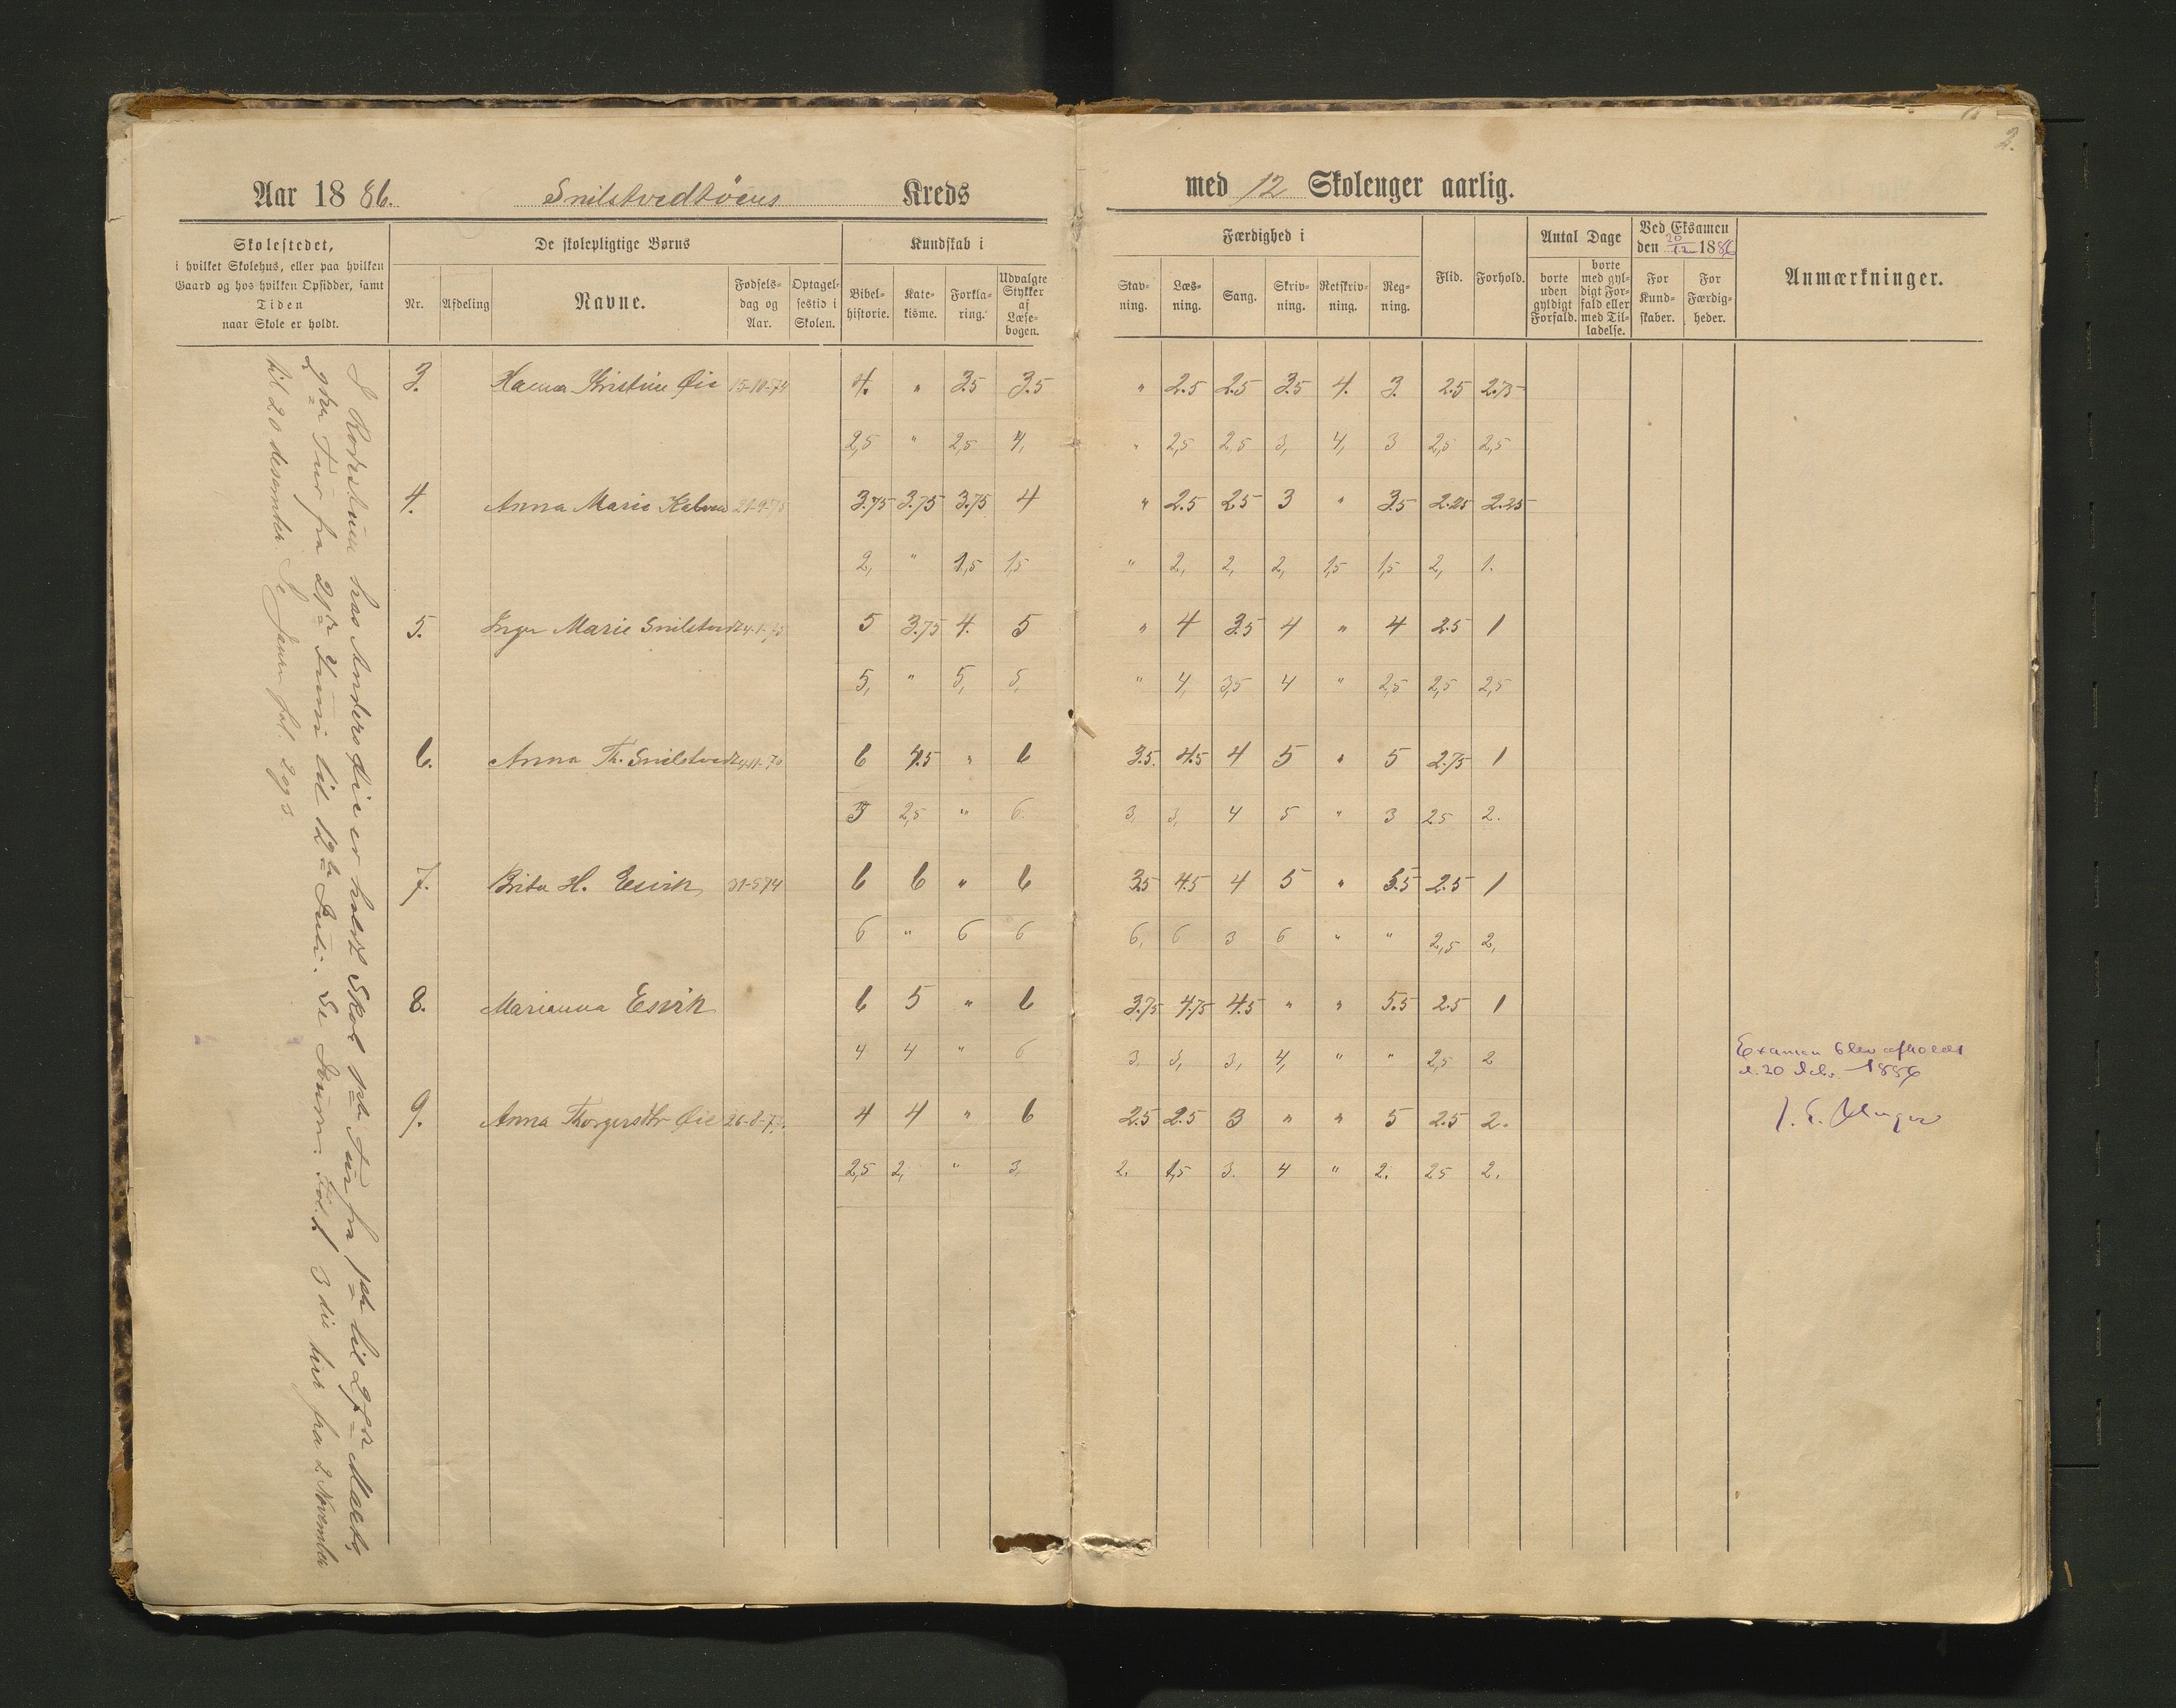 2.
Aar 1886. Snilstvedtöens Kreds med 12 Skolenger aarlig.
Skolestedet,
i hvilket Skolehus, eller paa hvilken
Gaard og hos hvilken Opsidder, samt
Tiden
naar Skole er holdt.
De skolepligtige Børns
Nr. Afdeling Navne. Fødselsdag og Aar. Optagelsestid i Skolen.
Kundskab i
Bibelhistorie. Katekisme. Forklaring. Udvalgte Stykker af Læsebogen.
Færdighed i
Stavning. Læsning. Sang. Skrivning. Retskrivning. Regning.
Flid. Forhold.
Antal Dage
borte uden gyldigt Forfald. borte med gyldigt Forfald eller med Tilladelse.
Ved Eksamen
den 20/12 1886
For Kundskaber. For Færdigheder.
Anmærkninger.
hos Anders Øie er holdt Skole 1ste Tur fra 1ste til 27de Marts,
2den Tur fra 21de Juni til 12te Juli. Se Journ. Fol. 1 3die ... fra 2 November
til 20 desember. Se Journ fol. 2 og 3.
3. Hanna Kristine Øie 15-10-74 4. " 3.5 3.5 " 2.5 2.5 3.5 4. 3. 2.5 2.75
2,5 " 2,5 4, " 2,5 2,5 3, 4, 3 2,5 2,5
4. Anna Marie 3.75 3.75 3.75 4 " 2.5 2.5 3 " 3.5 2.25 2.25
2, " 1,5 1,5 " 2, 2, 2, 1,5 1,5 2, 1.
5. Inger Marie Snilstvedt 5 3.75 4. 5 " 4 3.5 4 " 4 2.5 1
5, " 5, 5, " 4, 3,5 4 " 2,5 2,5 2,5
6. Anna Th. Snilstvedt 6 4.5 " 6 3.5. 4.5 4 5 " 5 2.75 1
5 2,5 " 6. 3, 3, 4 5 " 3 2,5 2.
7. Brita H. Esvik 31-5 74 6 6 " 6 3.5 4.5 4 5 " 5.5 2.5 1
6 " 6 6 6, 6 3 6 " " 2,5 2,
8. Marianna Esvik 6 5 " 6 3.75 4.75 4.5 " " 5.5 2.5 1
4 4 " 6 3, 3, 3, 4, " " 2,5 2
9. Anna Thorgersdtr Øie 4 4 " 6 2.5 2.5 3 " " 5 2.5 2.
2,5 2, " 3, 2. 1,5 3. 4 " 2. 2,5 2.
Examen blev afholdt
d. 20 Decbr. 1886